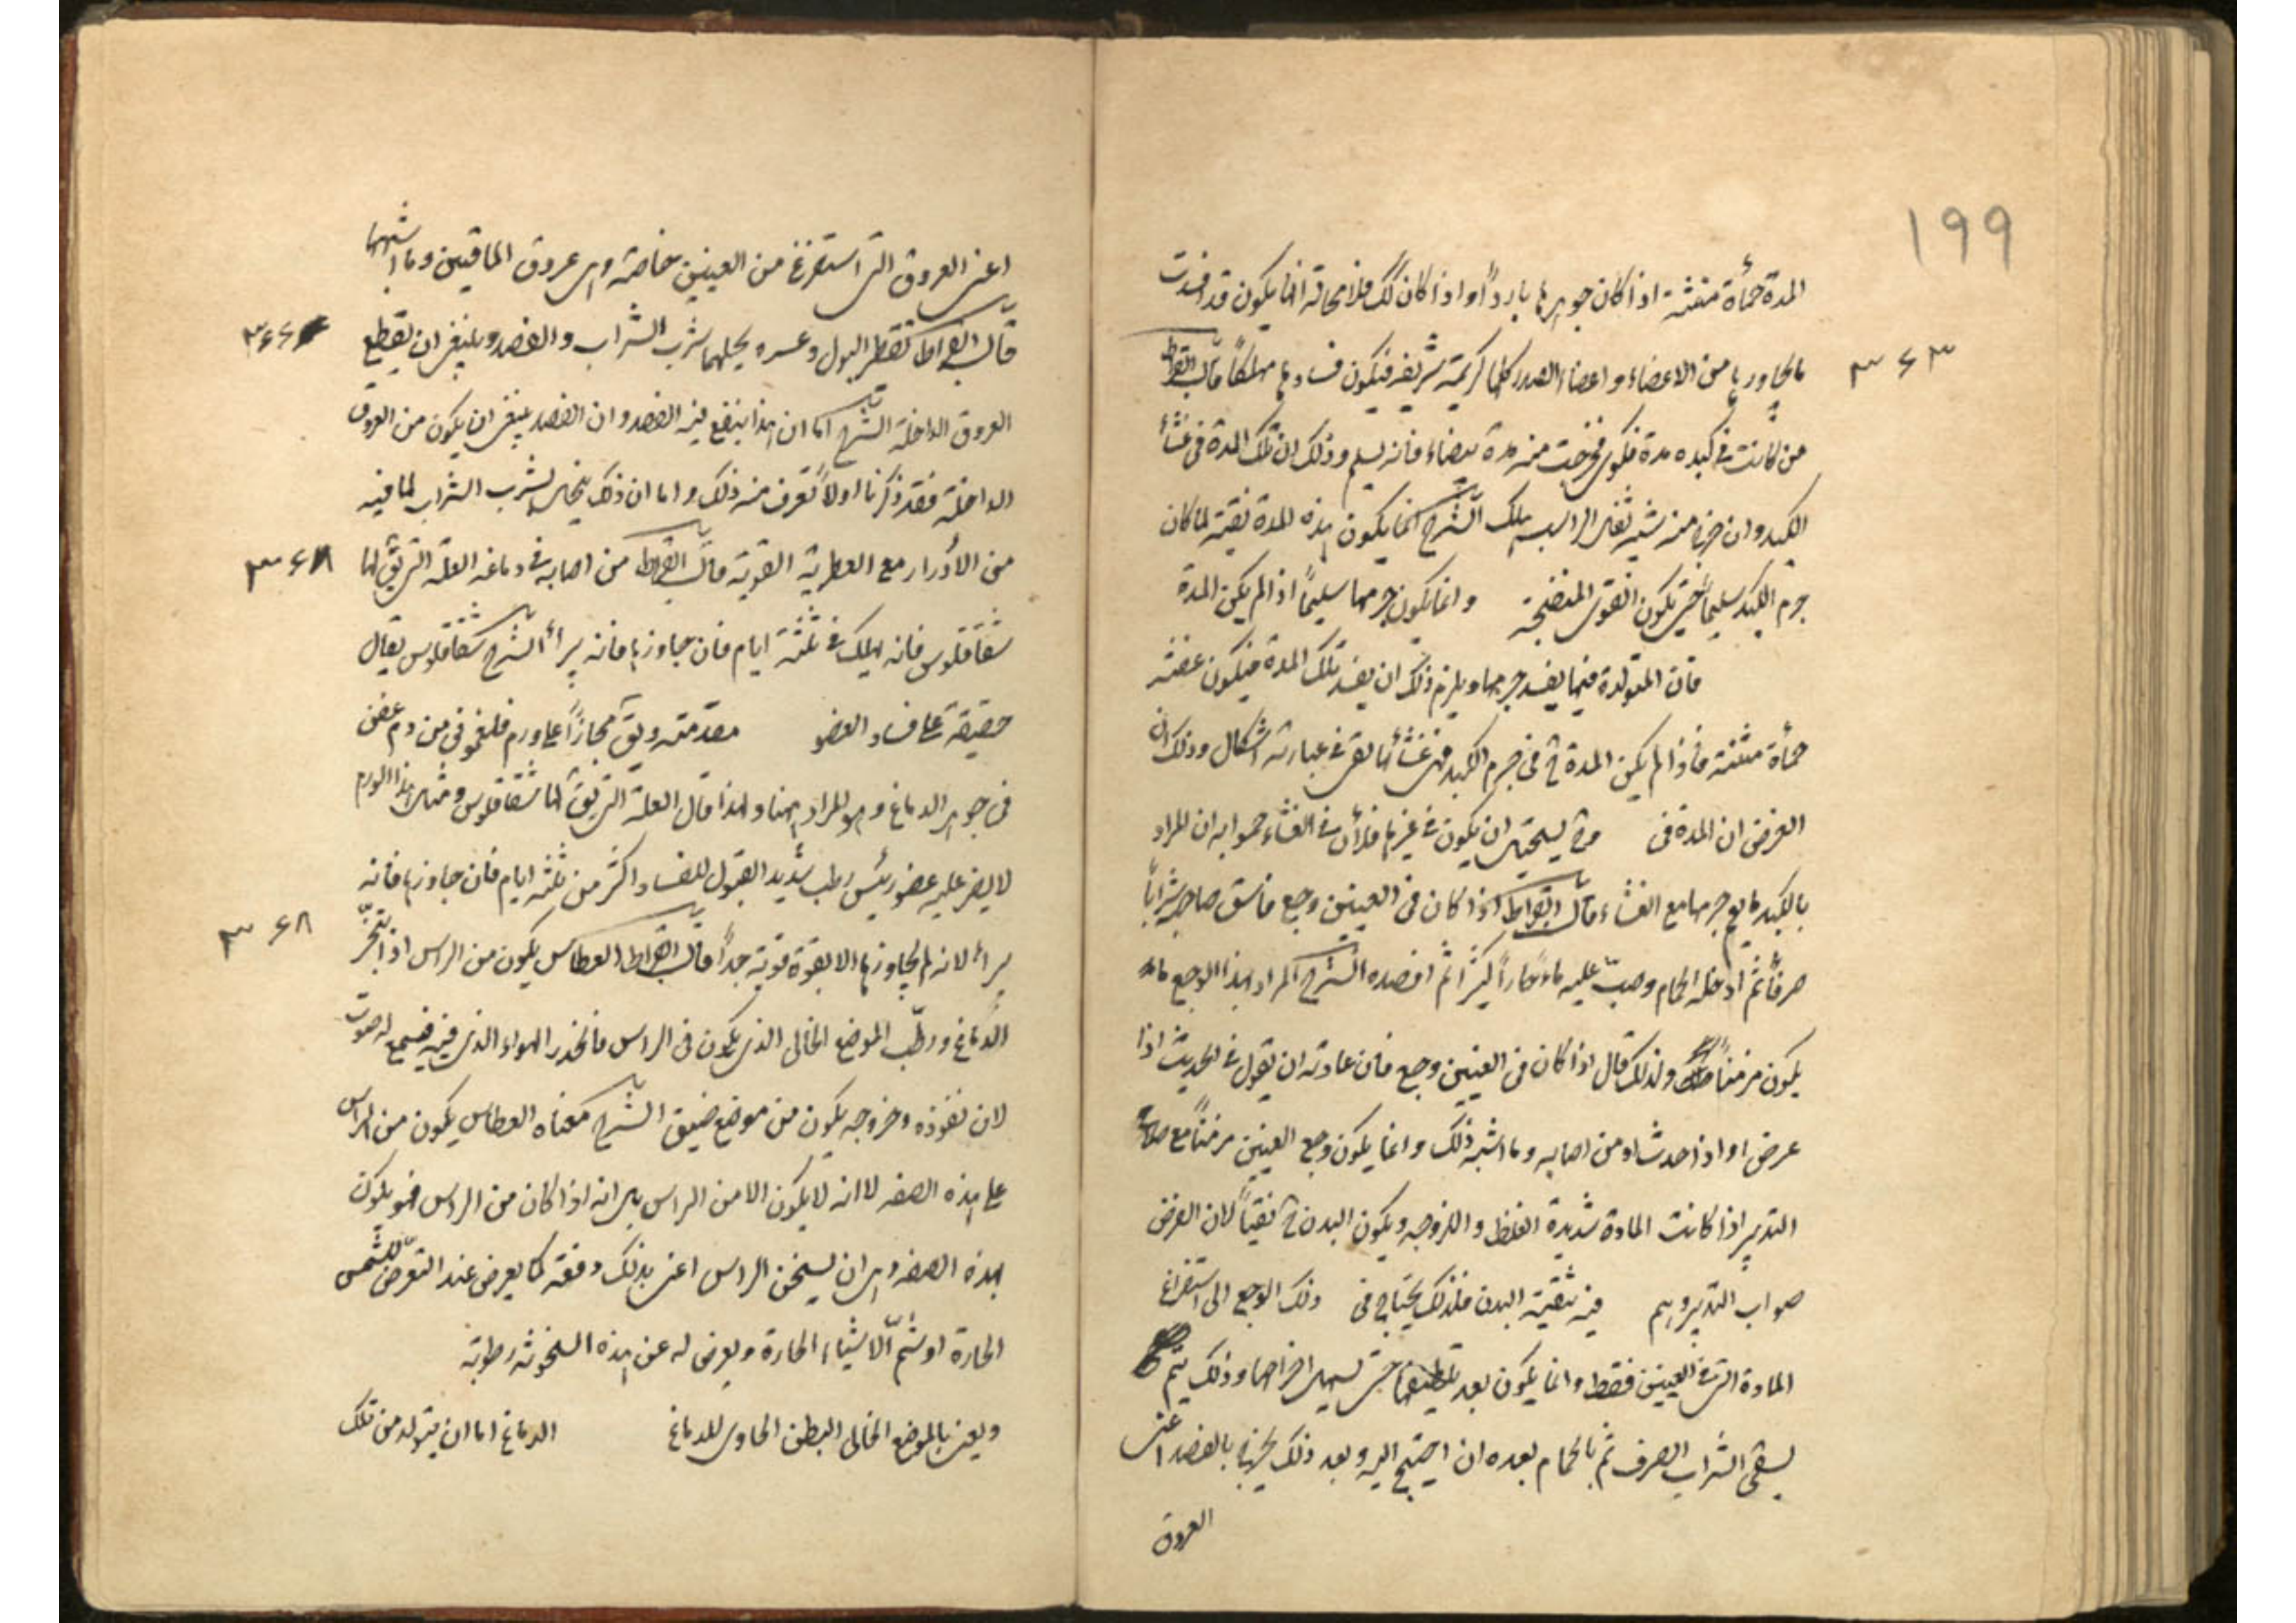 ١٩٩
المدة حمأة منتنة اذا كان جوهرها باردًا واذا كان كك فلا محالة انما يكون قد افسدت
٣٦٣
ما يجاورها من الاعضاء واعضاء الصدر كلها كريمة شريفة فيكون فسادها مهلكًا قال ابقراط
من كانت في كبده مدة فكوى فخرجت منه مدة بيضاء فانه يسلم وذلك ان تلك المدة في غشاء
الكبد وان خرج منه شبيه ثفل الزيت يهلك الشرح انما يكون هذه المدة نقية لما كان
جرم الكبد سليمًا حتى يكون القوى المنضجة وانما يكون جرمها سليمًا اذا لم يكن المدة
فان المتولدة فيها يفسد جرمها ويلزم ذلك ان يفسد تلك المدة فيكون عفنة
حمأة منتنة فاذا لم يكن المدة ح في جرم الكبد فهى غشائها بقى في عبارته اشكال وذلك ان
الغرض ان المدة في وح يستحيل ان يكون في غيرها في الغشاء جوابه ان المراد
بالكبد ما يعم جرمها مع الغشاء قال ابقراط اذا كان في العينين وجع فاسق صاحبه شرابًا
صرفًا ثم ادخله الحمام وصبّ عليه ماء حارًا كثيرًا ثم افصده الشرح المراد بهذا الوجع ما
يكون مزمنًا ولذلك قال اذا كان في العينين وجع فان عادته ان يقول في الحديث اذا
عرض او اذا حدث او من اصابه وما اشبه ذلك وانما يكون وجع العينين مزمنًا مع صواب
التدبير اذا كانت المادة شديدة الغلظ واللزوجه ويكون البدن ح نقيًا لان الغرض
صواب التدبير فيه تنقية البدن فلذلك يحتاج في ذلك الوجع الى استفراغ
المادة التي في العينين فقط وانما يكون بعد تلطيفها حتى يسهل اخراجها وذلك يتم
بسقى الشراب الصرف ثم بالحمام بعده ان احتيج اليه وبعد ذلك بالفصد اعنى
العروق
اعنى العروق التي تستفرغ من العينين خاصة وهى عروق الماقيين وما اشبهها
٣٦٦
قال ابقراط تقطير البول وعسره يحلهما شرب الشراب والفصد وينبغى ان يقطع
العروق الداخلة الشرح اما ان هذا ينفع فيه الفصد وان الفصد ينبغى ان يكون من العروق
الداخلة فقد ذكرنا اولًا تعرف منه ذلك واما ان ذلك ينحل بشرب الشراب لما فيه
٣٦٨
من الأدرار مع العطرية القوية قال ابقراط من اصابه في دماغه العلة التي يق لها
سقاقلوس فانه يهلك في ثلثة ايام فان جاوزها فانه يبرأ الشرح سقاقلوس يقال
حقيقة على فساد العضو مقدمته ويق مجازًا على ورم فلغمونى من دم عفن
في جوهر الدماغ وهو المراد ههنا ولهذا قال العلة التي يق لها سقاقلوس ومثل هذا الورم
لا يصبر عليه عضو رئيس رطب شديد القبول للفساد اكثر من ثلثة ايام فان جاوزها فانه
٣٦٨
يبرأ لانه لم يجاوزها الا بقوة قوية جدًا قال ابقراط العطاس يكون من الراس اذا
الدماغ ورطّب الموضع الخالى الذي يكون في الراس فانحذر الهواء الذي فيه فيسمع له صوت
لان نفوذه وخروجه يكون من موضع ضيق الشرح معناه العطاس يكون من الراس
على هذه الصفه لا انه لا يكون الا من الراس بل انه اذا كان من الراس فهو يكون
بهذه الصفه وهى ان يسخن الراس اعنى بذلك دفعة كما يعرض عند التعرض للشمس
الحارة او شمّ الاشياء الحارة ويعرض له عن هذه السخونة رطوبة
ويعنى بالموضع الخالى البطن الحاوى للدماغ الدماغ اما ان يتولد من تلك